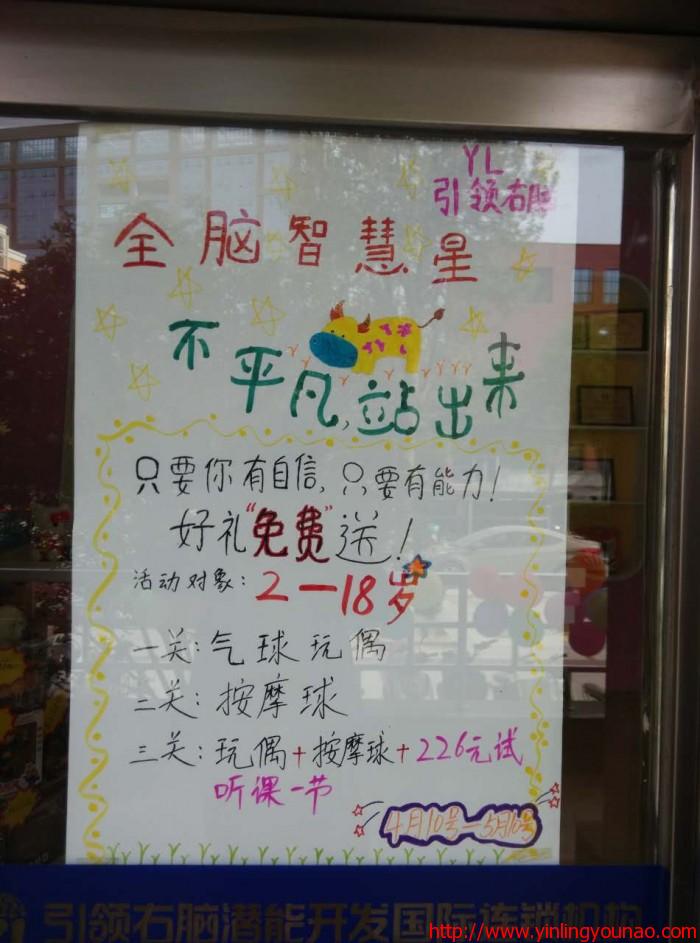 YL
引领右脑
全脑智慧星
不平凡,站出来
只要你有自信,只要有能力!
好礼"免费"送!
活动对象:2—18岁
一关:气球玩偶
二关:按摩球
三关:玩偶+按摩球+226元试
听课一节
4月10号—5月10号
引领右脑潜能开发国际连锁机构
http://www.yinlingyounao.com